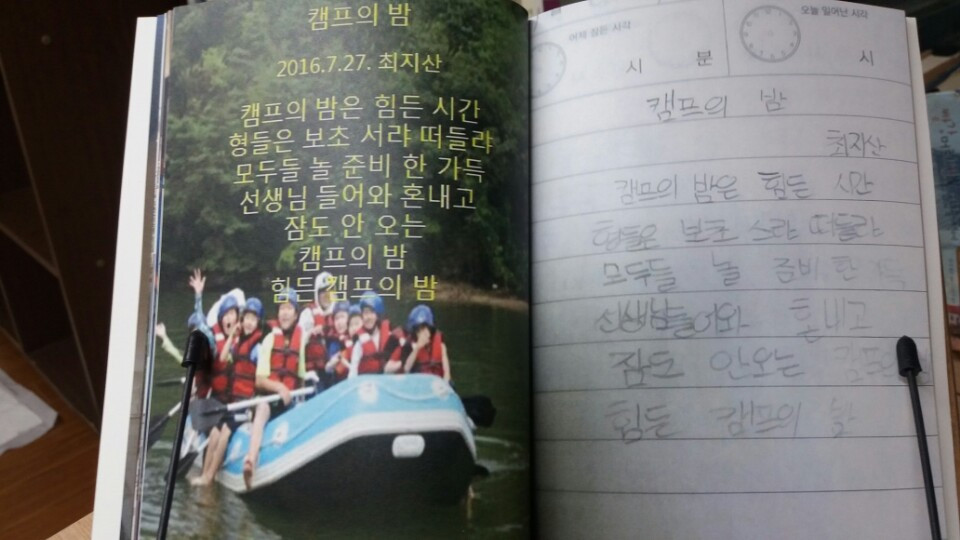 캠프의 밤
2016.7.27. 최지산
캠프의 밤은 힘든 시간
형들은 보초 서랴 떠들랴
모두들 놀 준비 한 가득
선생님 들어와 혼내고
잠도 안 오는
캠프의 밤
힘든 캠프의 밤
어제 잠든 시각
시 분
오늘 일어난 시각
시
캠프의 밤
최지산
캠프의 밤은 힘든 시간
형들은 보초 스랴 떠들랴
모두들 놀 준비 한 가득
선생님 들어와 혼내고
잠도 안오는
힘든 캠프의 밤